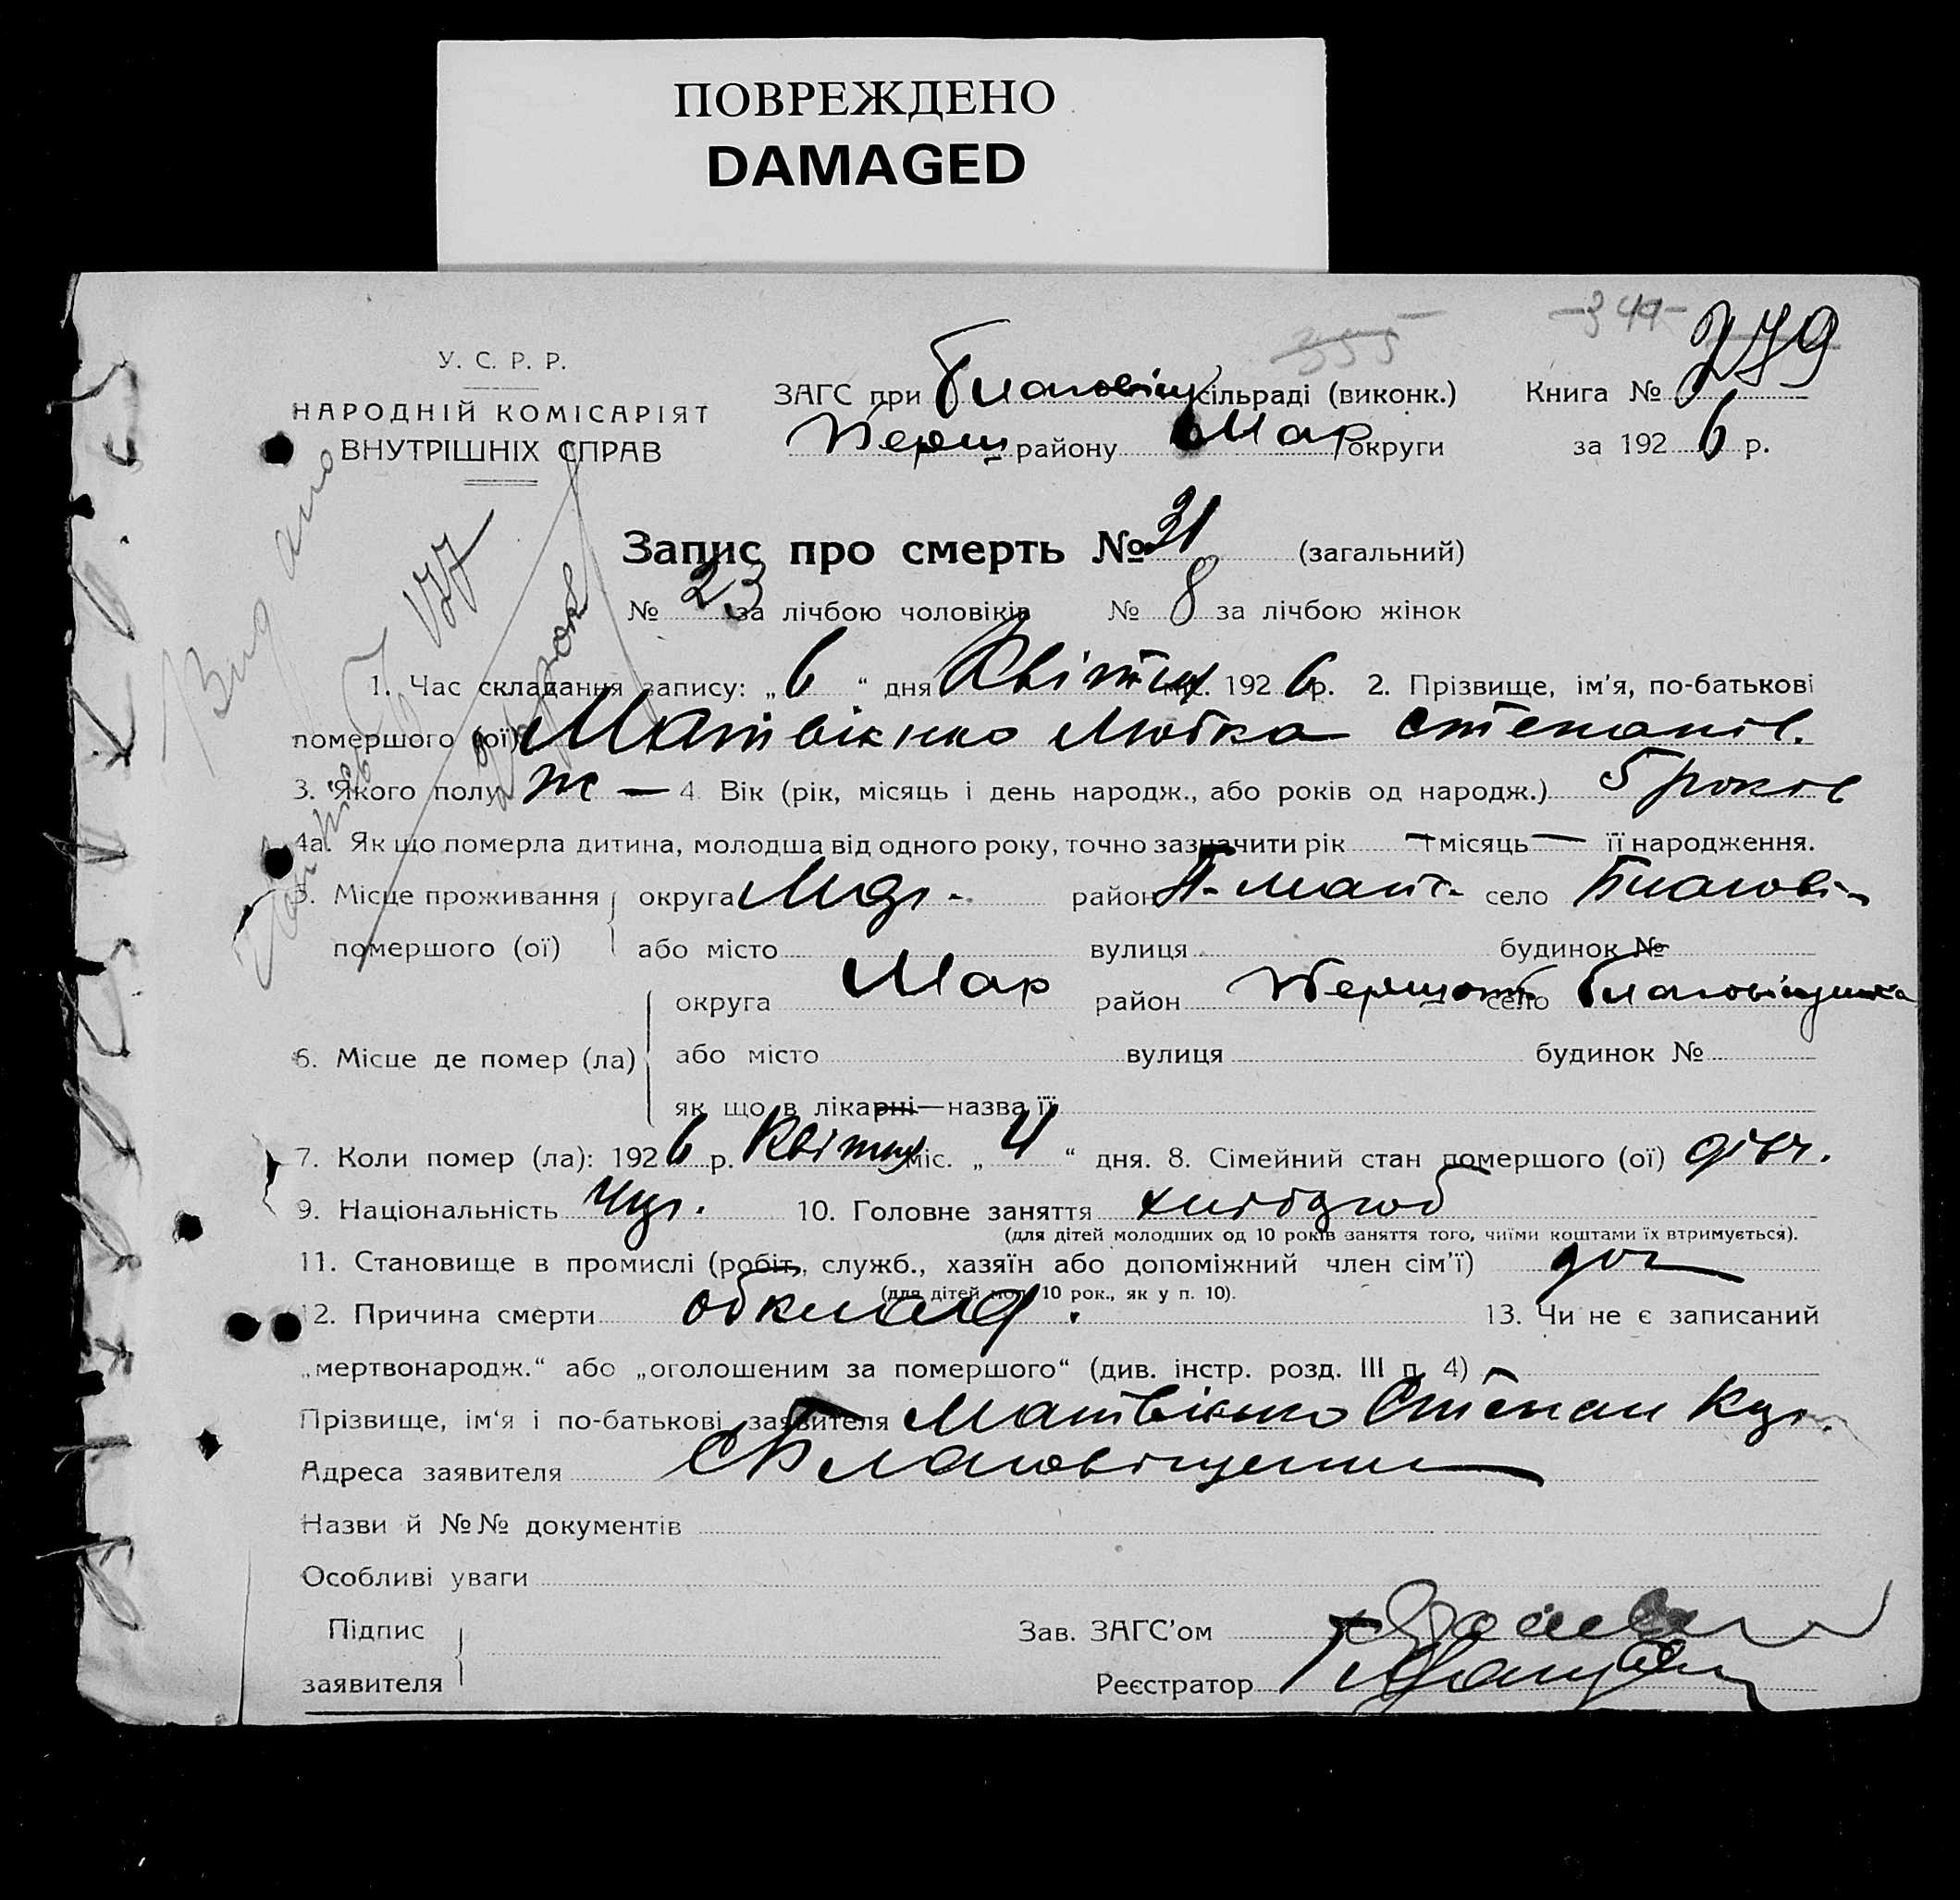 ПОВРЕЖДЕНО
DAMAGED
-344-
355
279
У. С. Р. Р.
НАРОДНІЙ КОМІСАРІЯТ
ВНУТРІШНІХ СПРАВ
ЗАГС при Благовіщ сільраді (виконк.) Книга №
Перш району Мар округи за 1926 р.
Запис про смерть № 31 (загальний)
№ 23 за лічбою чоловіків № 8 за лічбою жінок
1. Час складання запису: „6“ дня Квітня міс. 1926 р. 2. Прізвище, ім'я, по-батькові
помершого (ої) Матвієнко Любка Степанів.
3. Якого полу ж — 4. Вік (рік, місяць і день народж., або років од народж.) 5 років
4а. Як що померла дитина, молодша від одного року, точно зазначити рік — місяць — її народження.
5. Місце проживання округа район село Благові-
помершого (ої) або місто вулиця будинок №
округа Мар район Першот село Благовіщенка
6. Місце де помер (ла) або місто вулиця будинок №
як що в лікарні—назва її
7. Коли помер (ла): 1926 р. Квітня міс. „4“ дня. 8. Сімейний стан помершого (ої) дівч.
9. Національність Укр. 10. Головне заняття хлібороб
(для дітей молодших од 10 років заняття того, чиїми коштами їх втримується).
11. Становище в промислі (робіт., служб., хазяїн або допоміжний член сім'ї) доч
(для дітей мол. 10 рок., як у п. 10).
12. Причина смерти обклад. 13. Чи не є записаний
„мертвонародж.“ або „оголошеним за помершого“ (див. інстр. розд. III п. 4) —
Прізвище, ім'я і по-батькові заявителя Матвієнко Степан Куз.
Адреса заявителя С Благовіщенка
Назви й №№ документів
Особливі уваги
Підпис
заявителя
Зав. ЗАГС'ом
Реєстратор